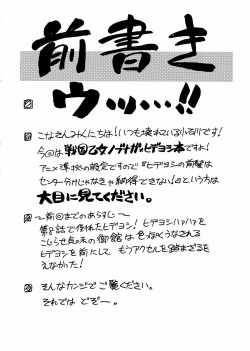 前書き
ウッ…!!
こなさんみんにちは!いつも壊れている小石川です!
今回は戦国乙女ノブナガ×ヒデヨシ本ですわ!
アニメ準拠の設定ですので『ヒデヨシの前髪は
センター分けじゃなきゃ納得できない!』という方は
大目に見てください。
~前回までのあらすじ~
第8話で倒れたヒデヨシ!ヒデヨシハァハァを
こじらせ気味の御館は色っぽくうなされる
ヒデヨシを前にして もうアクセルを踏まざるを
えなかった!
そんなカンジでご覧ください。
それでは どぞー。